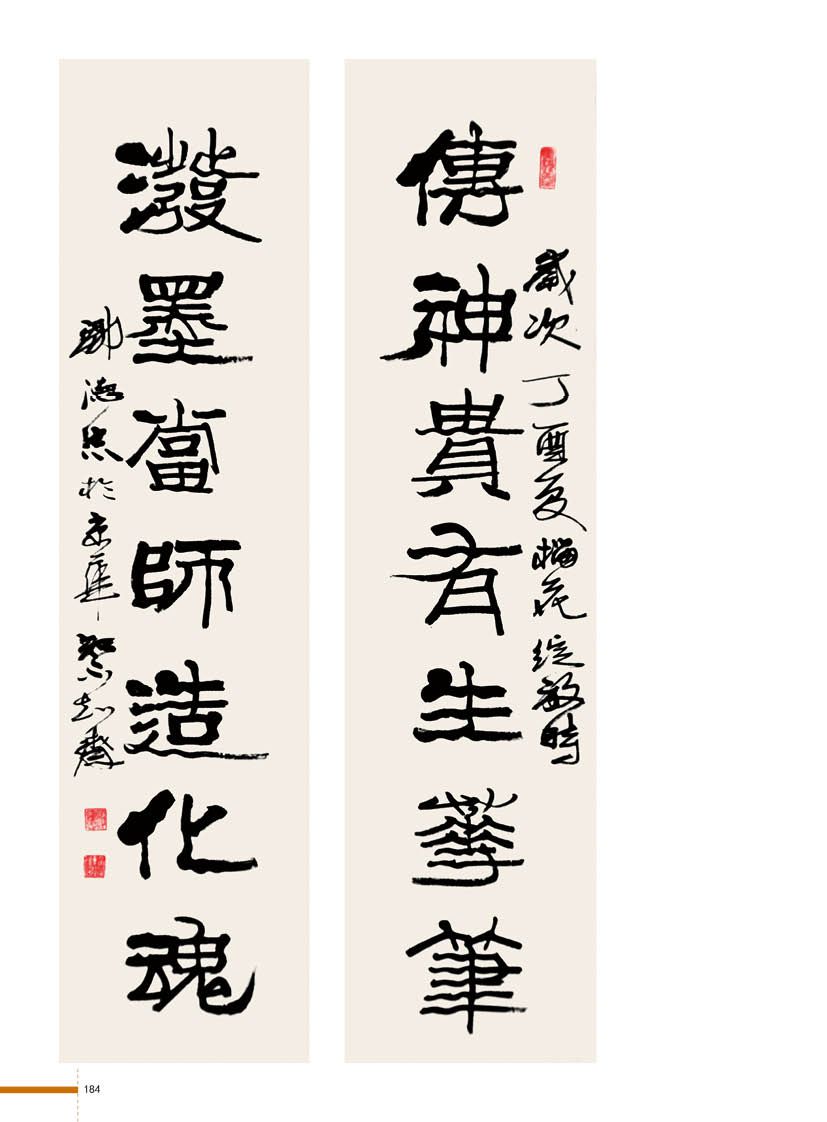 歲次丁酉夏榴花綻放時
傳神貴有生華筆
潑墨當師造化魂
德於京華志齋
184